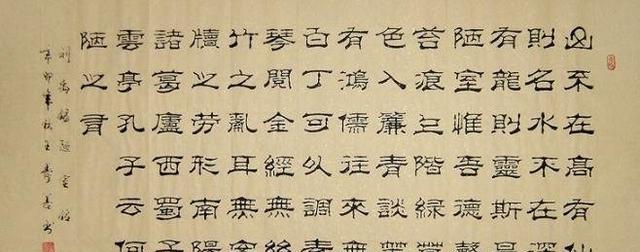 山不在高有仙
則名水不在深
有龍則靈斯是
陋室惟吾德馨
苔痕上階綠草
色入簾青談笑
有鴻儒往來無
白丁可以調素
琴閱金經無絲
竹之亂耳無案
牘之勞形南陽
諸葛廬西蜀子
雲亭孔子云何
陋之有
劉禹錫陋室銘
辛卯年秋王